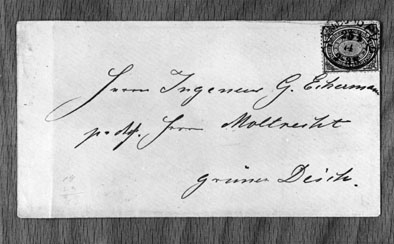 Herrn Ingenieur G. Eckermann
p. Adr. Herrn Moltrecht
grüner Deich.